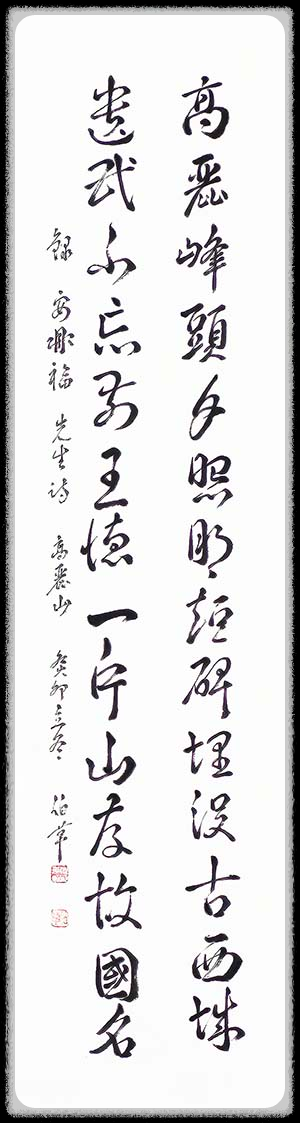 高麗峰頭夕照明短碑埋没古西城
遺民不忘前王德一片山存故國名
錄 安鼎福 先生詩 高麗山 癸卯立冬